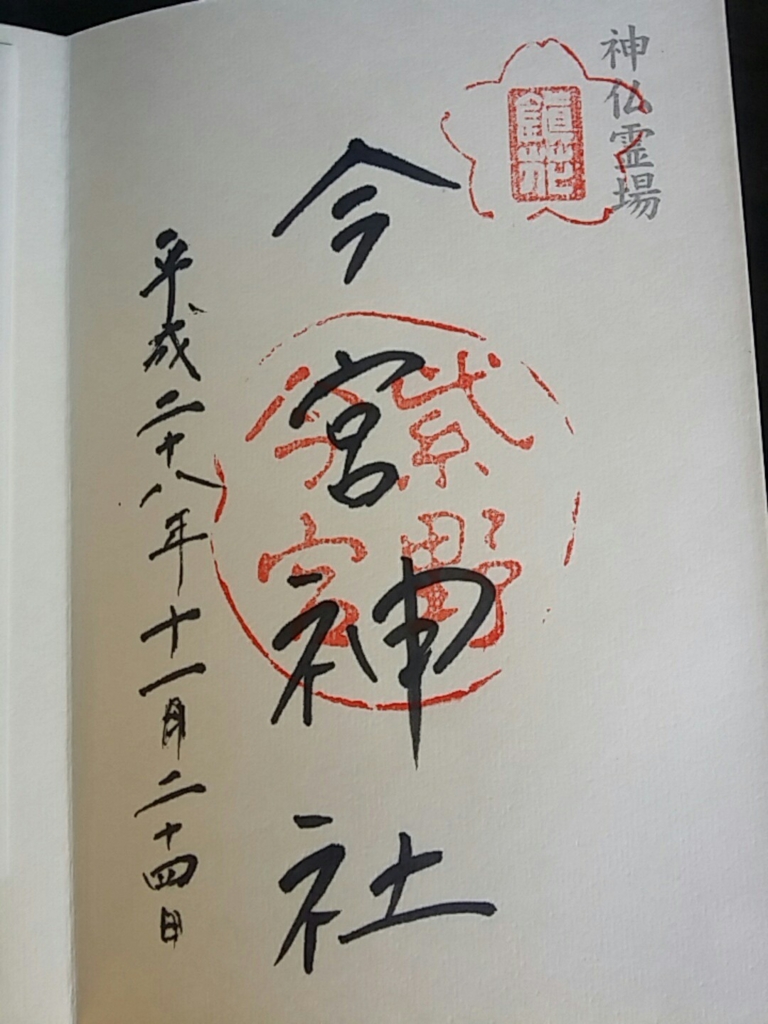 神仏霊場
鎮花
紫野
今宮
今宮神社
平成二十八年十一月二十四日